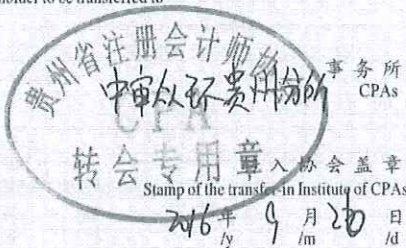 holder to be transferred to
贵州省注册会计师协
中审众环贵州分所 事务所
CPAs
CPA
转会专用章
转入协会盖章
Stamp of the transfer-in Institute of CPAs
2016年 9月 20日
/y /m /d